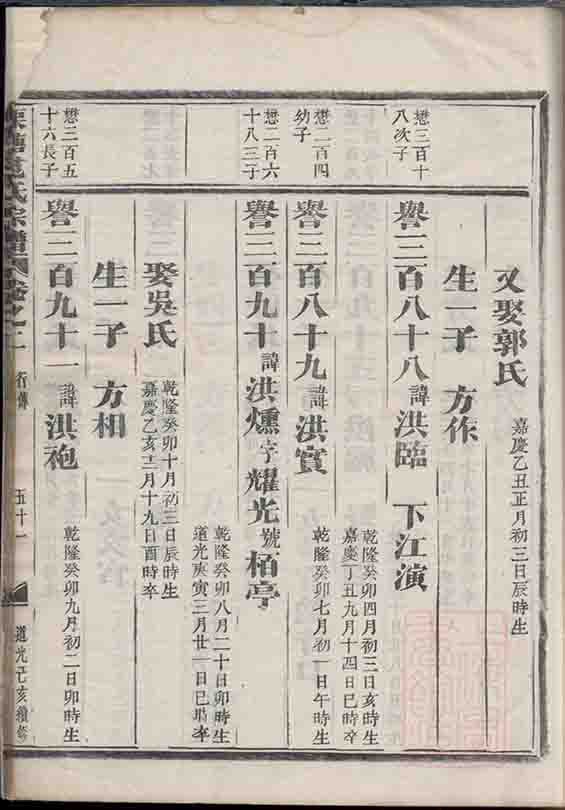 又娶郭氏 嘉慶乙丑正月初三日辰時生
生一子 方作
懋三百十
八次子
譽三百八十八 諱洪臨 下江演
乾隆癸卯四月初三日亥時生
嘉慶丁丑九月十四日巳時卒
懋二百四
幼子
譽三百八十九 諱洪實 乾隆癸卯七月初一日午時生
懋二百六
十八三子
譽三百九十 諱洪燻 字耀光 號栢亭
乾隆癸卯八月二十日卯時生
道光庚寅三月廿一日巳時卒
娶吳氏
乾隆癸卯十月初三日辰時生
嘉慶乙亥二月十九日酉時卒
生一子 方相
懋三百五
十六長子
譽三百九十一 諱洪袍 乾隆癸卯九月初二日卯時生
氏宗譜 卷之二 行傳 五十一 道光己亥續修